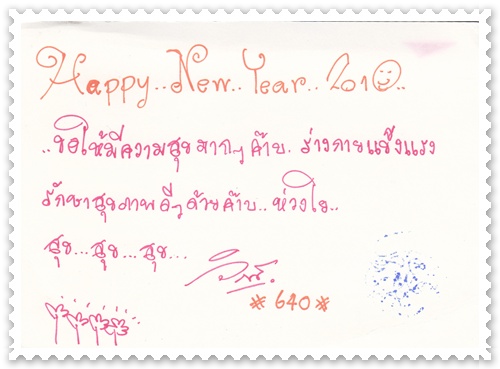 Happy.. New.. Year.. 2010..
..ขอให้มีความสุขมากๆ ค๊าบ. ร่างกายแข็งแรง
รักษาสุขภาพดีๆด้วยค๊าบ.. ห่วงใย..
สุข... สุข... สุข...
* 640 *